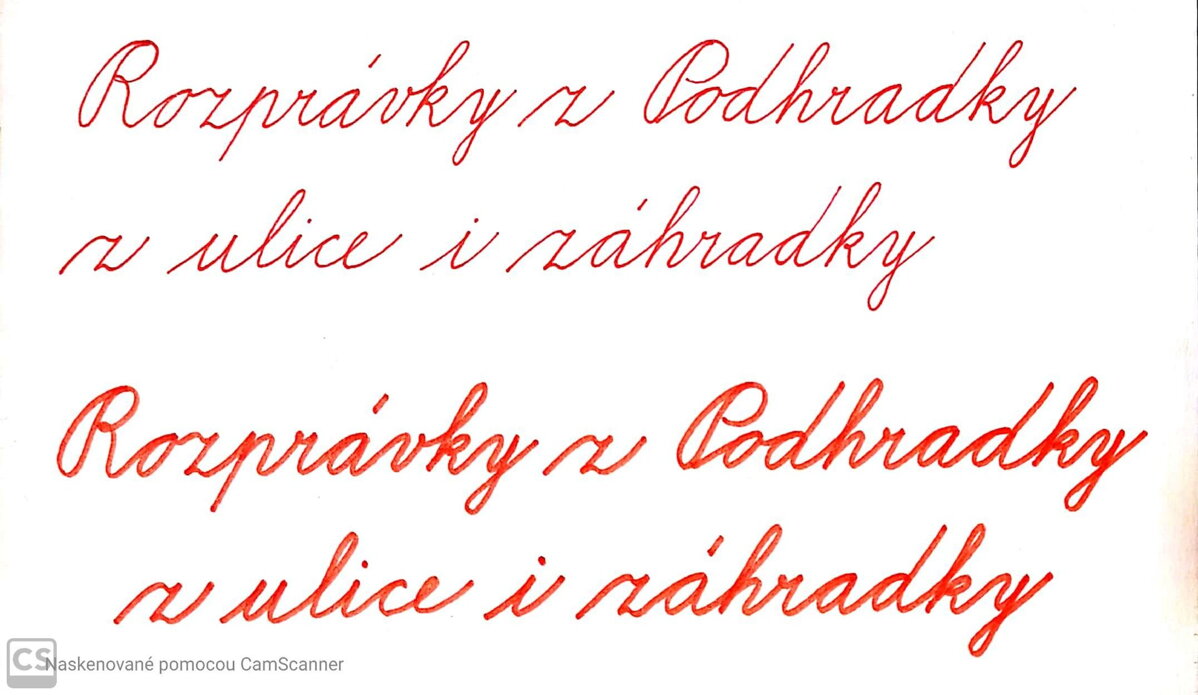 Rozprávky z Podhradky
z ulice i záhradky
Rozprávky z Podhradky
z ulice i záhradky
CS Naskenované pomocou CamScanner